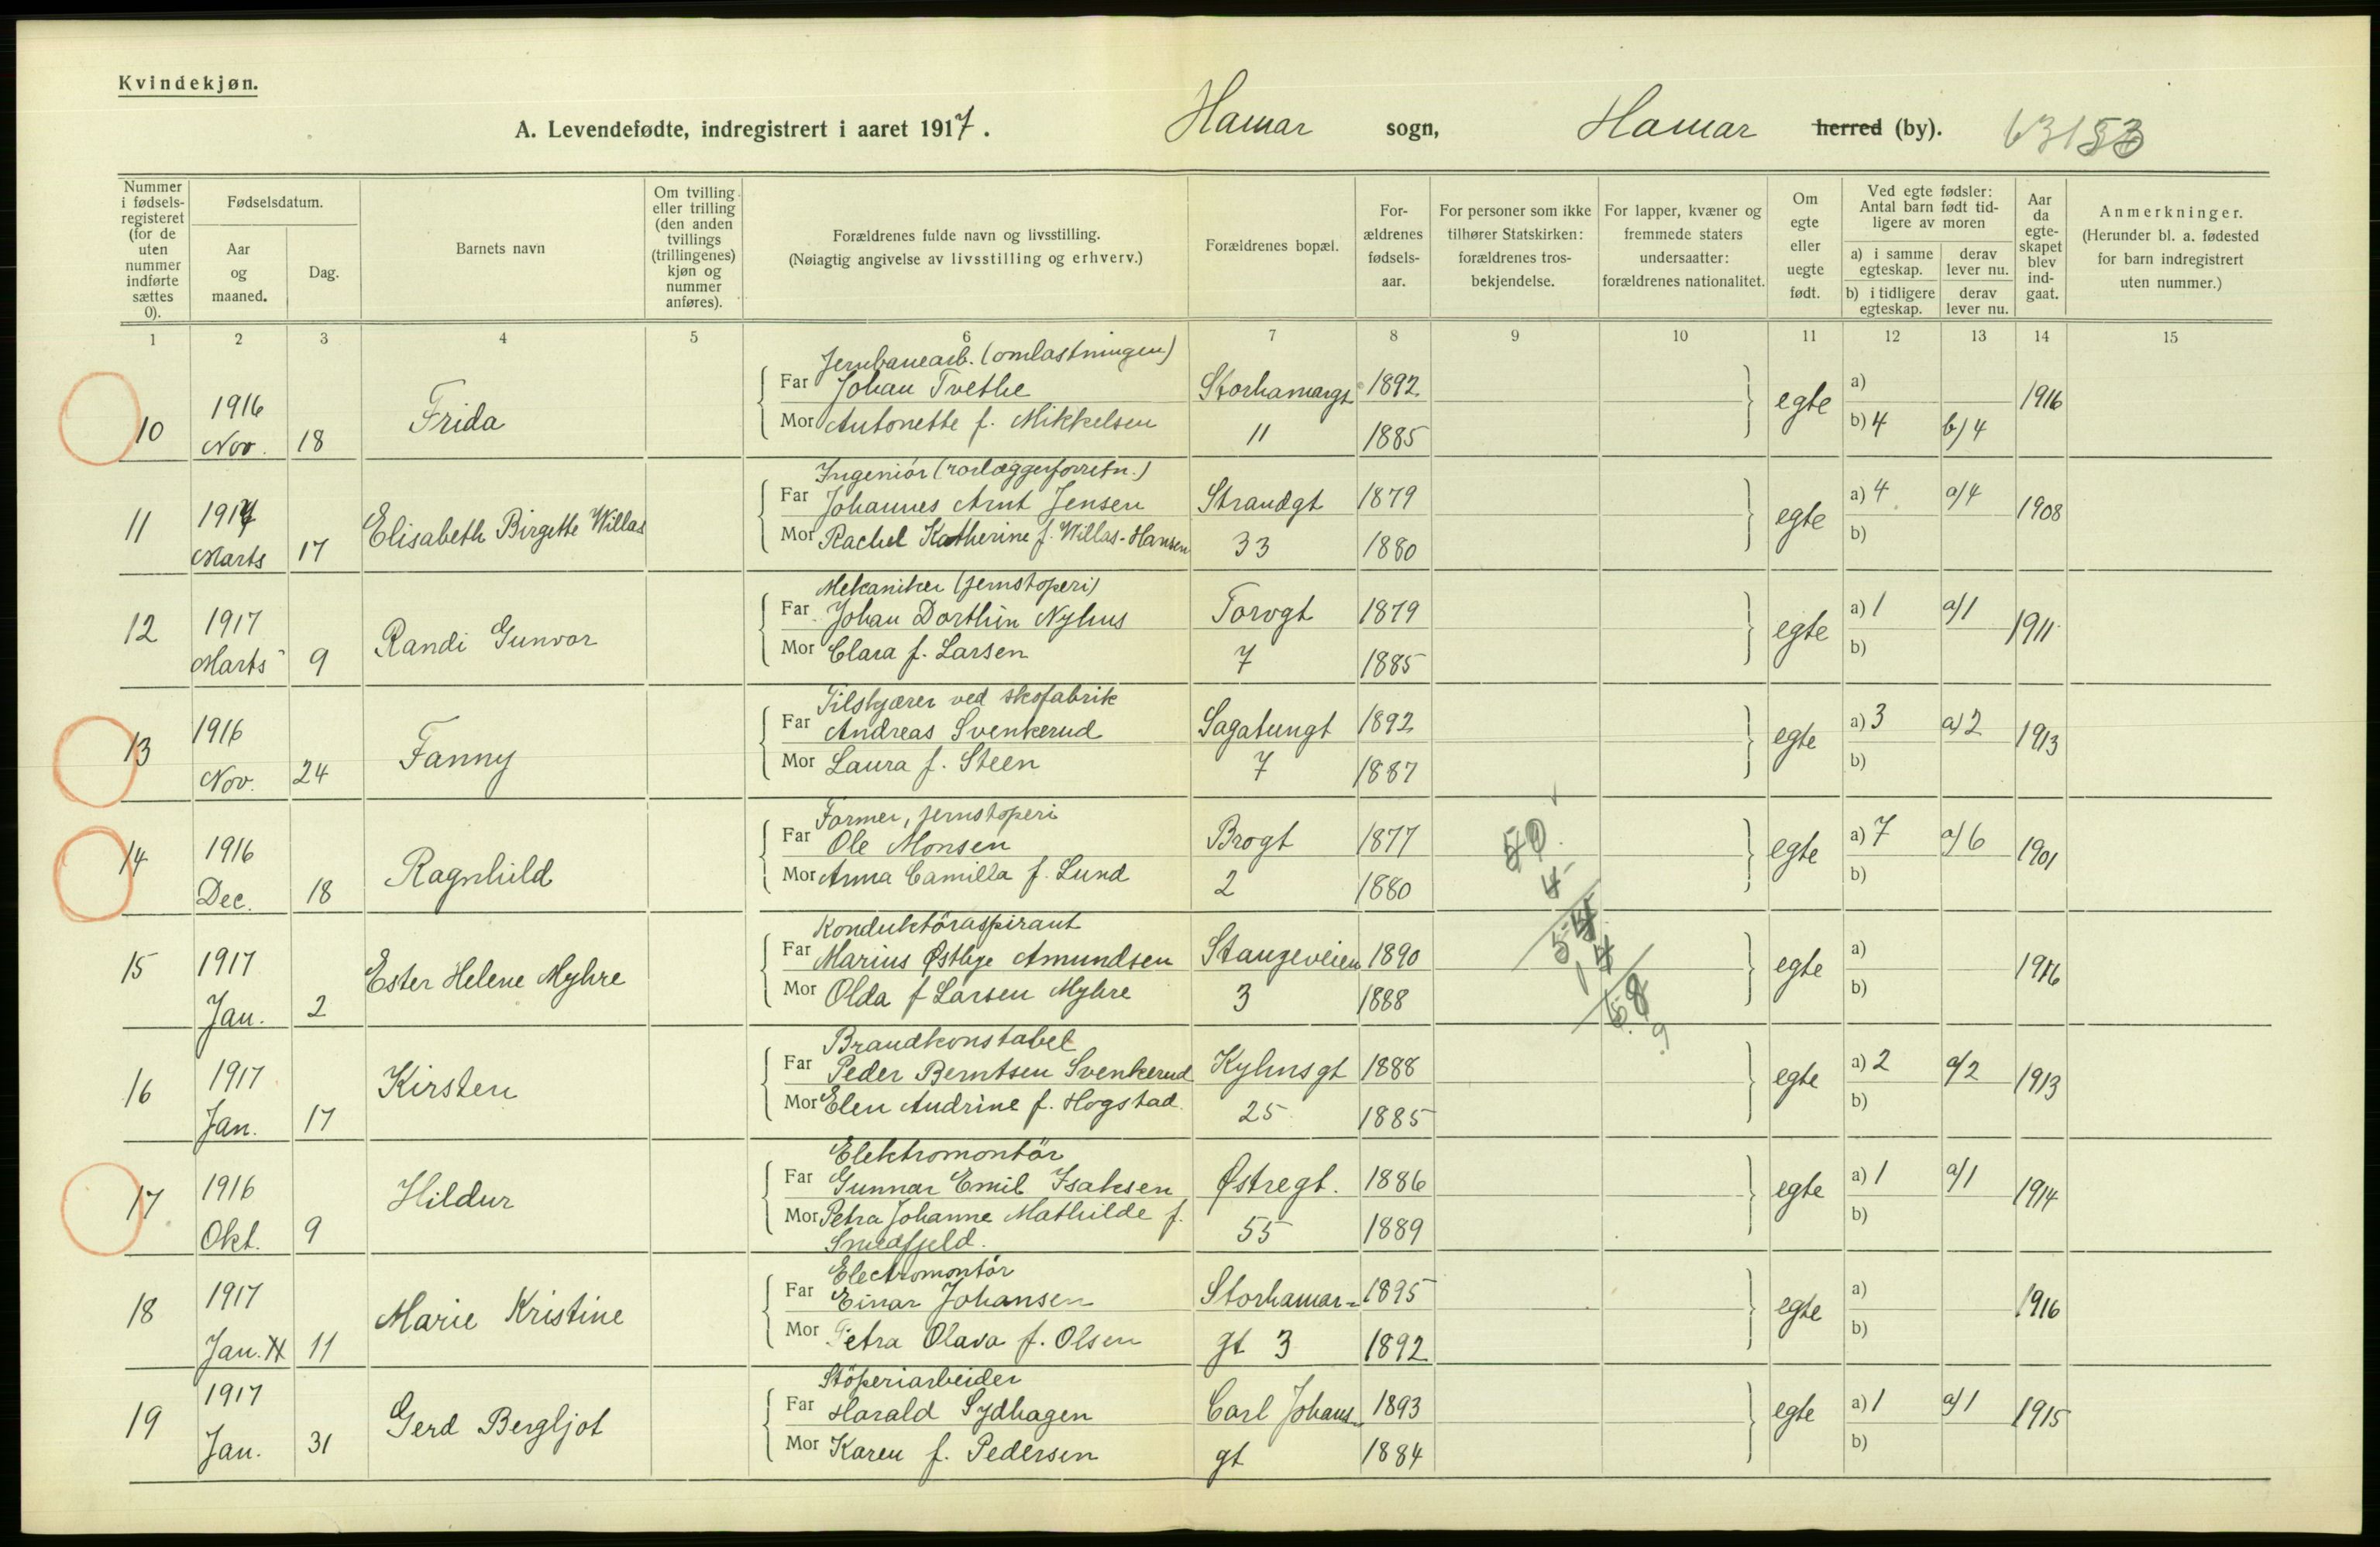 Kvindekjøn.
A. Levendefødte, indregistrert i aaret 1917. Hamar sogn, Hamar herred (by).
Nummer i fødselsregisteret (for de uten nummer indførte sættes 0).
Fødselsdatum.
Aar og maaned.
Dag.
Barnets navn
Om tvilling eller trilling (den anden tvillings (trillingenes) kjøn og nummer anføres).
Forældrenes fulde navn og livsstilling.
(Nøiagtig angivelse av livsstilling og erhverv.)
Forældrenes bopæl.
Forældrenes fødselsaar.
For personer som ikke tilhører Statskirken: forældrenes trosbekjendelse.
For lapper, kvæner og fremmede staters undersaatter: forældrenes nationalitet.
Om egte eller uegte født.
Ved egte fødsler: Antal barn født tidligere av moren
a) i samme egteskap. derav lever nu.
b) i tidligere egteskap. derav lever nu.
Aar da egteskapet blev indgaat.
Anmerkninger.
(Herunder bl. a. fødested for barn indregistrert uten nummer.)
1 2 3 4 5 6 7 8 9 10 11 12 13 14 15
Jernbanearb. (omlastningen)
10 1916 Nov. 18 Frida
Far Johan Tvethe Storhamargt 1892
Mor Antonette f. Mikkelsen 11 1885
egte a) b) 4 b/4 1916
Ingeniör (rørlæggerforretn.)
11 1917 Marts 17 Elisabeth Birgitte Willas
Far Johannes Arnt Jensen Strandgt 1879
Mor Rachel Katherine f. Willas-Hansen 33 1880
egte a) 4 a/4 b) 1908
Mekaniker (jernstøperi)
12 1917 Marts 9 Randi Gunvor
Far Johan Dorthin Nyhus Torvgt 1879
Mor Clara f. Larsen 7 1885
egte a) 1 a/1 b) 1911
Tilskjærer ved skofabrik
13 1916 Nov. 24 Fanny
Far Andreas Svenkerud Sagatungt 1892
Mor Laura f. Steen 7 1887
egte a) 3 a/2 b) 1913
Former, jernstøperi
14 1916 Dec. 18 Ragnhild
Far Ole Monsen Brogt 1877
Mor Anna Camilla f. Lund 2 1880
egte a) 7 a/6 b) 1901
Konduktöraspirant
15 1917 Jan. 2 Ester Helene Myhre
Far Marius Østbye Amundsen Stangeveien 1890
Mor Olda f Larsen Myhre 3 1888
egte a) b) 1916
Brandkonstabel
16 1917 Jan. 17 Kirsten
Far Peder Berntsen Svenkerud Kyhnsgt 1888
Mor Elen Andrine f. Hogstad. 25 1885
egte a) 2 a/2 b) 1913
Elektromontör
17 1916 Okt. 9 Hildur
Far Gunnar Emil Isaksen Østregt. 1886
Mor Petra Johanne Mathilde f. 55 1889
Smedfjeld.
egte a) 1 a/1 b) 1914
Electromontör
18 1917 Jan. 11 Marie Kristine
Far Einar Johansen Storhamar- 1895
Mor Petra Olava f. Olsen gt 3 1892
egte a) b) 1916
Stöperiarbeider
19 1917 Jan. 31 Gerd Bergljot
Far Harald Sydhagen Carl Johans- 1893
Mor Karen f. Pedersen gt 1884
egte a) 1 a/1 b) 1915